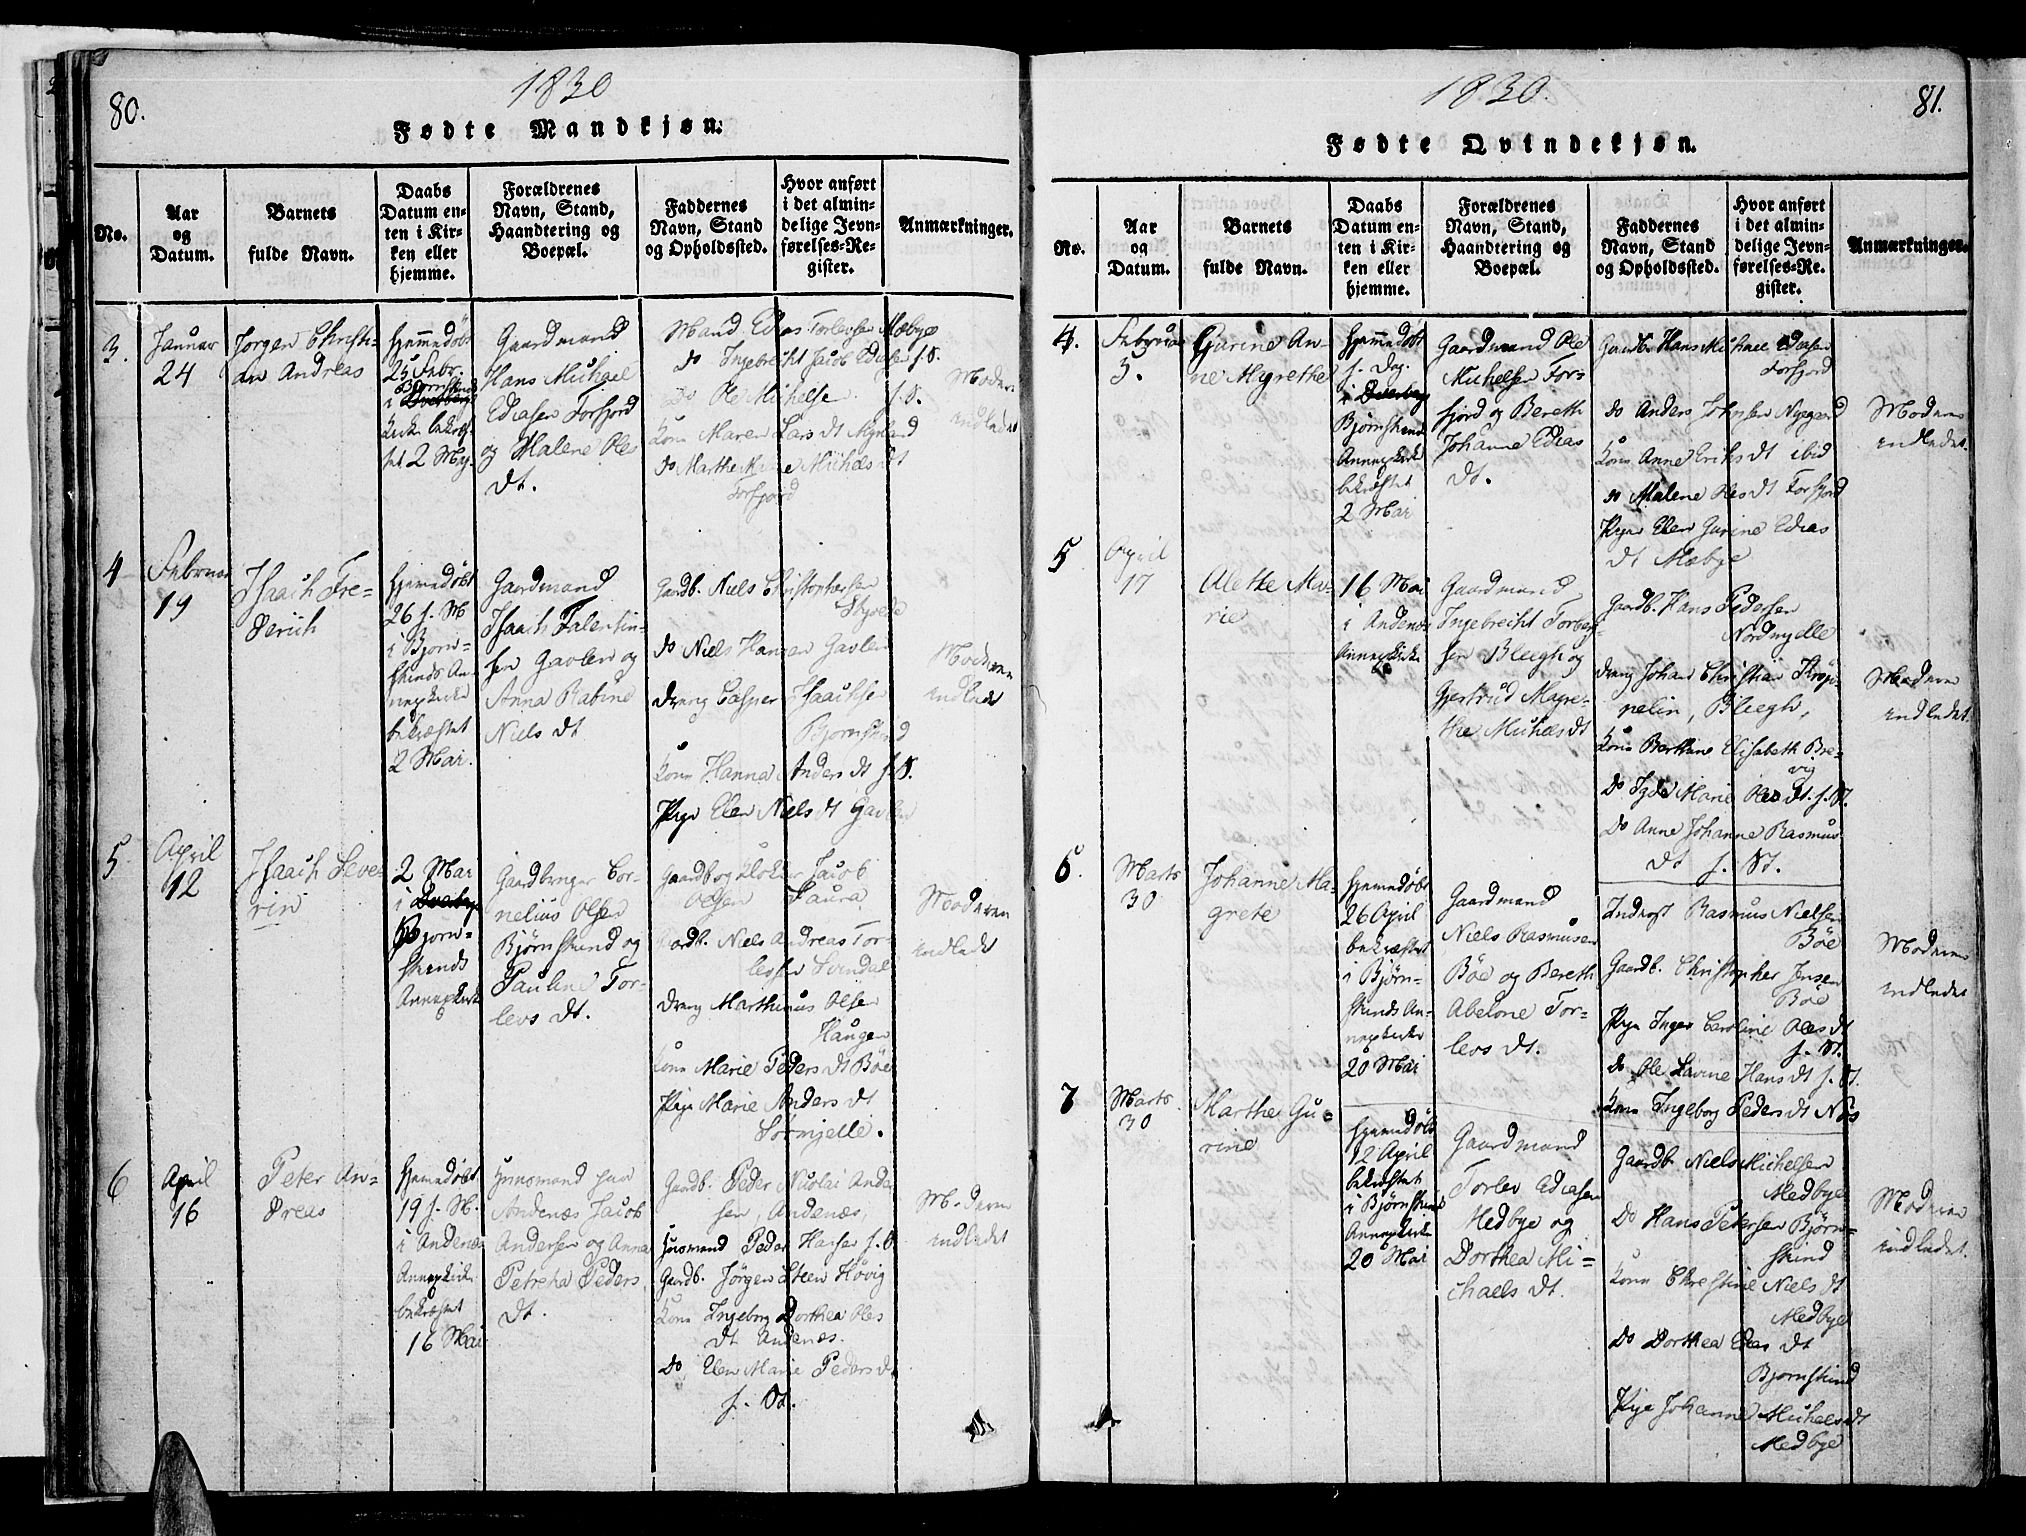 80.
1830
Fødte Mandkjøn.
No.
Aar
og
Datum.
Barnets
fulde Navn.
Daabs
Datum en-
ten i Kir-
ken eller
hjemme.
Forældrenes
Navn, Stand,
Haandtering og
Boepæl.
Faddernes
Navn, Stand
og Opholdssted.
Hvor anført
i det almin-
delige Jevn-
førelses-Re-
gister.
Anmærkninger.
3.
Januar
24
Jørgen Christi-
an Andreas
Hjemmedøbt
25 Febr.
Bjørnskind
i
Kirke bekræf-
tet 2 Maj
Gaardmand
Hans Michael
Ediasen Forfjord
og Malene Oles
dt.
Mand Edias Torlevsen Mæbye
do Ingebrecht Jacob Edisen f. S.
Do Ole Michelse f. S.
Kone Maren Lars dt Mynland
do Marthe Michels dt
Forfjord
Moderen
indledet
4
Februar
19
Isaach Fre-
derich
Hjemmedøbt
26 f. M
i Bjørn-
skinds An-
nexkirke
bekræftet
2 Mai.
Gaardmand
Isaach Falentin-
sen Gavlen og
Anna Rabine
Niels dt
Gaardb. Niels Christophersen
Skjvede
do Niels Hansen Gavlen
dreng Casper Isachsen
Bjørnskind
Kone Hanna Anders dt f. S.
Pige Elen Niels dt Gavlen
Moderen
indledt
5
April
12
Isaach Seve-
rin
2 Mai
i
Bjørn-
skinds
Annexkirke
Gaardbruger Cor-
nelius Olsen
Bjørnskind og
Pauline Tor-
levs dt.
Gaardb og Klokker Jacob
Olsen Saura
Gaardb. Niels Andreas Tor-
levsen Svindal
dreng Marthinus Olsen
Haugen
Kone Marie Peders dt Böe
Pige Marie Anders dt
Sörmjelle.
Moderen
indledt
6
April
16
Peter An-
dreas
Hjemmedøbt
19 f. M.
i Andenæs
Annexkirke
bekræftet
16 Mai
Huusmand paa
Andenæs Jacob
Andersen og Anna
Petreha Peders
dt.
Gaardb. Peder Nicolai Ander
sen, Andenæs,
Huusmand Peder Hansen f. S.
Gaardb. Jørgen Steen Høvig
Kone Ingeborg Dorthea Oles
dt Andenæs.
Do Elen Marie Peders dt
f. St.
Moderen
indledet
81.
1830.
Fødte Qvindekjøn.
No.
Aar
og
Datum.
Barnets
fulde Navn.
Daabs
Datum en-
ten i Kir-
ken eller
hjemme.
Forældrenes
Navn, Stand,
Haandtering og
Boepæl.
Faddernes
Navn, Stand
og Opholdssted.
Hvor anført
i det almin-
delige Jevn-
førelses-Re.
gister.
Anmærkninger.
4.
Februar
3.
Gurine An-
ne Magrethe
Hjemmedøbt
f. Dag.
i
Bjørnskind
Annexkirke
bekræftet
2 Mai
Gaardmand Ole
Michelsen For-
fjord og Bereth
Johanne Edias
dt.
Gaardb. Hans Michael Ediasen
Forfjord
do Anders Johnsen Nyegaard
Kone Anne Eriks dt ibid
do Malene Oles dt Forfjord
Pige Elen Gurine Edias
dt Mæbye
Moderen
indledet.
5
April
17
Alethe Ma-
rie
16 Mai
i Andenæs
Annexkirke
Gaardmand
Ingebrecht Torberg-
sen Bleegh og
Gjertrud Magre-
the Michels dt
Gaardb. Hans Pedersen
Nordmjelle
dreng Johan Christian Krøj-
nelin, Bleegh,
Kone Berthine Elisabeth Bre-
vig
do Igde Marie Oles dt. f. St.
do Anne Johanne Rasmus-
dt f. St.
Moderen
indledet
6.
Marts
30
Johanne Ma-
grete
Hjemmedøbt
26 April
bekræftet
i Bjørn-
skinds An-
nexkirke
20 Mai
Gaardmand
Niels Rasmusen
Böe og Bereth
Abelone Tor-
levs dt.
Inderst Rasmus Nielsen
Böe
Gaardb. Christopher Jensen
Böe
Pige Inger Caroline Oles dt
f. St.
do Ole Lavine Hans dt f. St.
Kone Ingeborg Peders dt Nös
Moderen
indledet
7
Marts
30
Marthe Gu-
rine
Hjemmedøbt
12 April
bekræftet
i Bjørnskinds
Annexkirke
20 Mai
Gaardmand
Torlev Ediasen
Medbye og
Dorthea Mi-
chaels dt.
Gaardb. Niels Michelsen
Medbye
Do Hans Petersen Björn-
skind
Kone Christine Niels dt
Medbye
Do Dorthea Edias dt
Bjørnskind
Pige Johanne Michels dt
Medbye
Moderen
indledet.